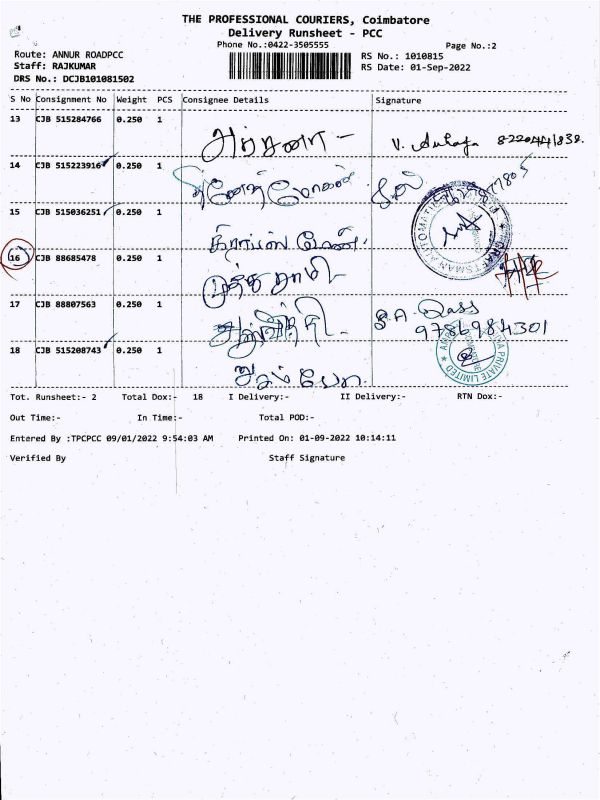 THE PROFESSIONAL COURIERS, Coimbatore
Delivery Runsheet - PCC
Phone No.:0422-3505555 Page No.:2
Route: ANNUR ROADPCC RS No.: 1010815
Staff: RAJKUMAR RS Date: 01-Sep-2022
DRS No.: DCJB101081502
S No Consignment No Weight PCS Consignee Details Signature
13 CJB 515284766 0.250 1
அர்சனா -
14 CJB 515223916 0.250 1
15 CJB 515036251 0.250 1
16 CJB 88685478 0.250 1
முத்து சாமி
17 CJB 88807563 0.250 1
9786984301
18 CJB 515208743 0.250 1
PRIVATE LIMITED
Tot. Runsheet:- 2 Total Dox:- 18 I Delivery:- II Delivery:- RTN Dox:-
Out Time:- In Time:- Total POD:-
Entered By :TPCPCC 09/01/2022 9:54:03 AM Printed On: 01-09-2022 10:14:11
Verified By Staff Signature